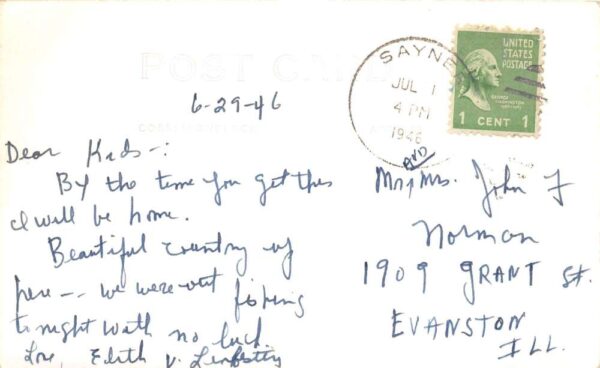 POST CARD
6-29-46
Dear Kids-:
By the time you get this
I will be home.
Beautiful country up
here -- we were out fishing
tonight with no luck.
Love, Edith
SAYNER
JUL 1
4 PM
1946
UNITED
STATES
POSTAGE
1 CENT 1
Mr AND Mrs. John F
Norman
1909 GRANT St.
EVANSTON
ILL.